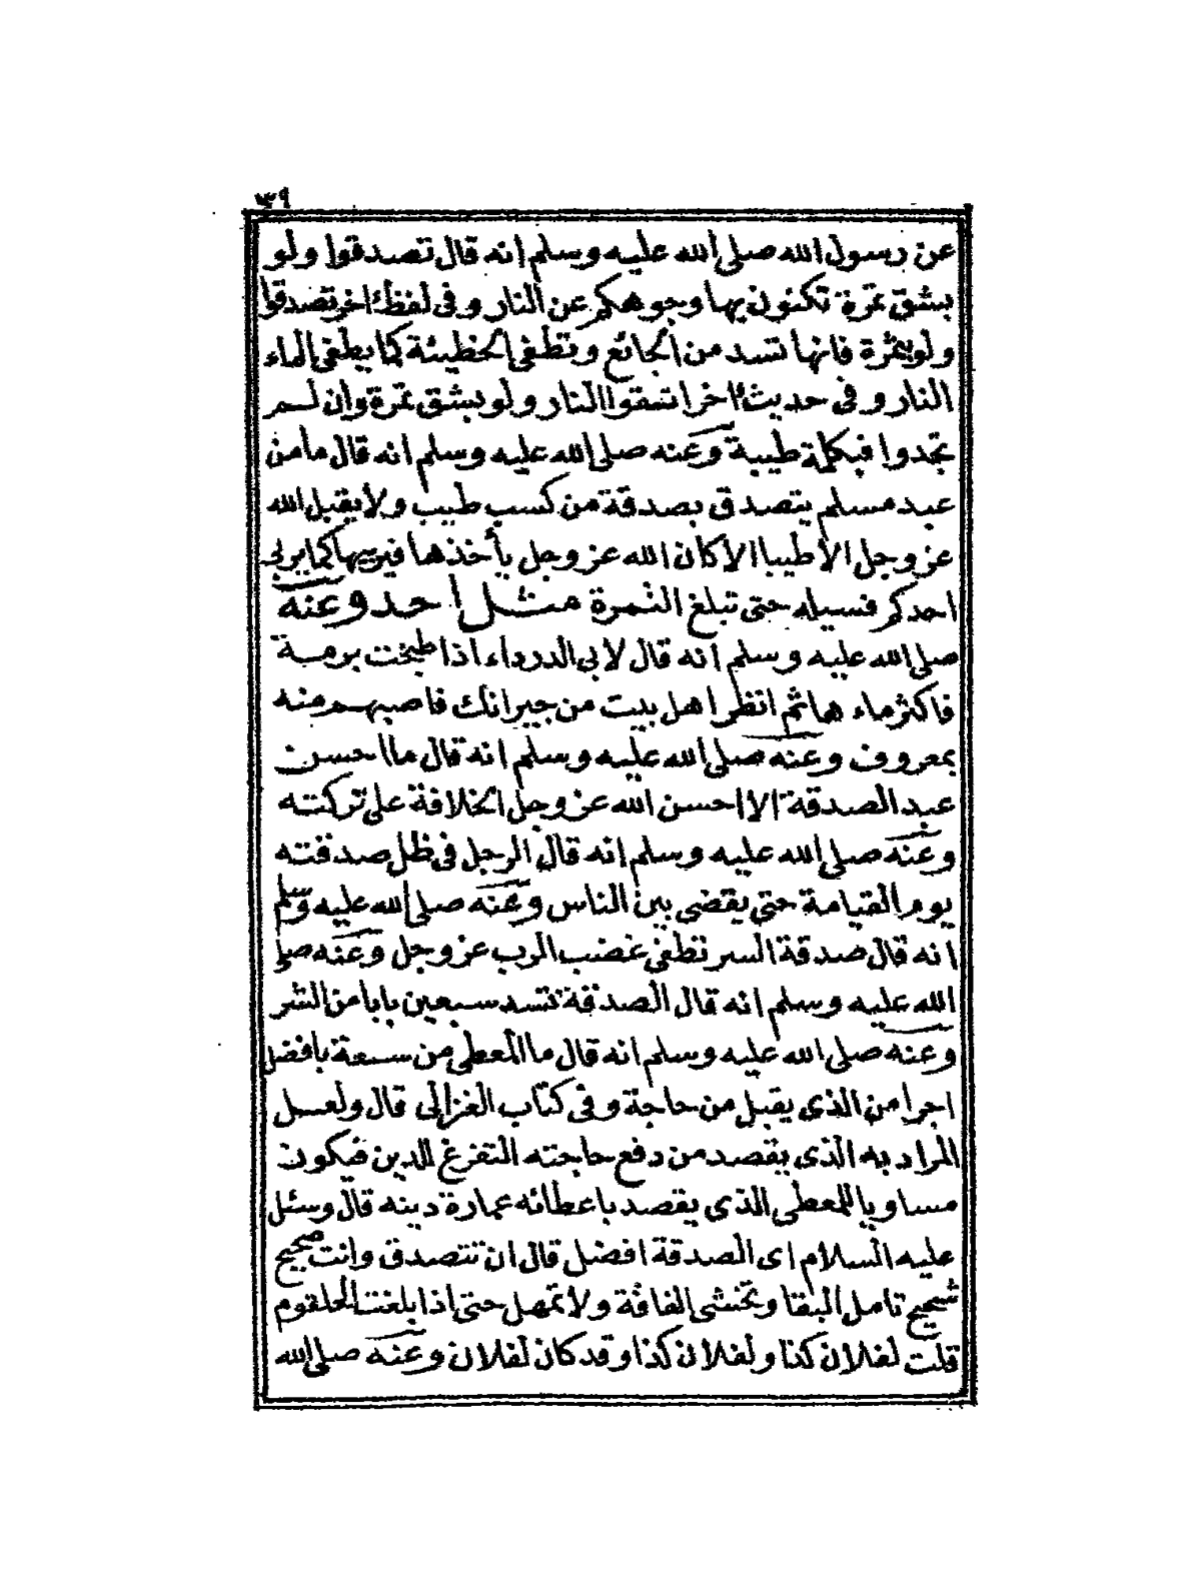 ١٣٩
عن رسول الله صلى الله عليه وسلم انه قال تصدقوا ولو
بشق تمرة تكنون بها وجوهكم عن النار وفى لفظ اخر تصدقوا
ولو بتمرة فانها تسد من الجائع وتطفى الخطيئة كما يطفى الماء
النار وفى حديث اخر اتقوا النار ولو بشق تمرة وان لم
تجدوا فبكلمة طيبة وعنه صلى الله عليه وسلم انه قال ما من
عبد مسلم يتصدق بصدقة من كسب طيب ولا يقبل الله
عز وجل الا طيبا الا كان الله عز وجل يأخذها فيربيها كما يربى
احدكم فسيله حتى تبلغ الثمرة مثل احد وعنه
صلى الله عليه وسلم انه قال لابى الدرداء اذا طبخت برمة
فاكثر ماءها ثم انظر اهل بيت من جيرانك فاصبهم منه
بمعروف وعنه صلى الله عليه وسلم انه قال ما احسن
عبد الصدقة الا احسن الله عز وجل الخلافة على تركته
وعنه صلى الله عليه وسلم انه قال الرجل فى ظل صدقته
يوم القيامة حتى يقضى بين الناس وعنه صلى الله عليه وسلم
انه قال صدقة السر تطفى غضب الرب عز وجل وعنه صلى
الله عليه وسلم انه قال الصدقة تسد سبعين بابا من الشر
وعنه صلى الله عليه وسلم انه قال ما المعطى من سعة بافضل
اجرا من الذى يقبل من حاجة وفى كتاب الغزالى قال ولعل
المراد به الذى يقصد من دفع حاجته التفرغ للدين فيكون
مساويا للمعطى الذى يقصد باعطائه عمارة دينه قال وسئل
عليه السلام اى الصدقة افضل قال ان تتصدق وانت صحيح
شحيح تامل البقا وتخشى الفاقة ولا تمهل حتى اذا بلغت الحلقوم
قلت لفلان كذا ولفلان كذا وقد كان لفلان وعنه صلى الله